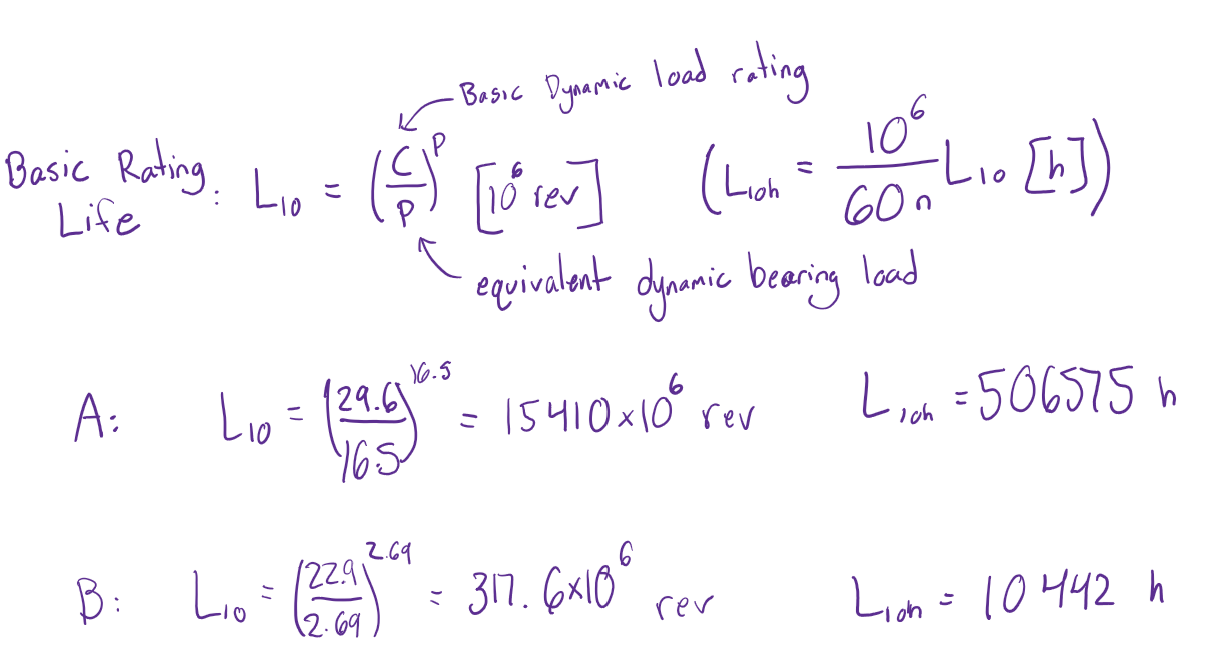 Basic Dynamic load rating
Basic Rating Life: L₁₀ = (C/P)^P [10⁶ rev] (L₁₀h = 10⁶/60n L₁₀ [h])
equivalent dynamic bearing load
A: L₁₀ = (29.6/16.5)^16.5 = 15410×10⁶ rev L₁₀h = 506575 h
B: L₁₀ = (22.9/2.69)^2.69 = 317.6×10⁶ rev L₁₀h = 10442 h